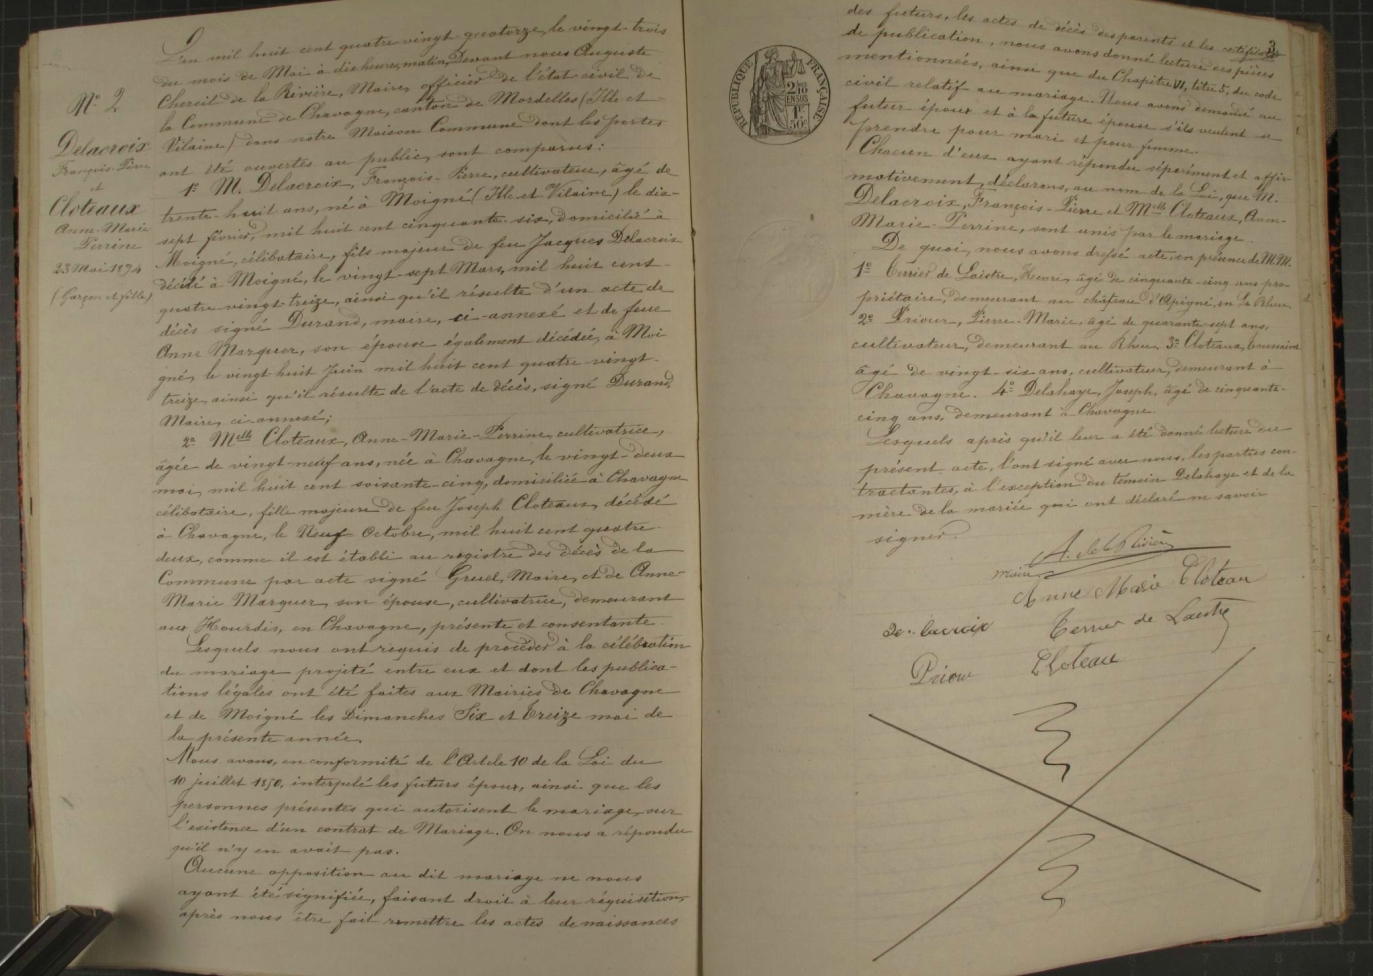 L'an mil huit cent quatre vingt quatorze, le vingt-trois
du mois de Mai à dix heures, matin, Devant nous Auguste
Chereil de la Rivière, Maire, officier de l'état civil de
la Commune de Chavagne, canton de Mordelles (Ille et-
Vilaine) dans notre Maison Commune dont les portes
ont été ouvertes au public, sont comparus:
Nº 2
Delacroix
François-Pierre
et
Cloteaux
Anne-Marie
Perrine
23 Mai 1894
(Garçon et fille)
1º M. Delacroix, François-Pierre, cultivateur, âgé de
trente-huit ans, né à Moigné (Ille et Vilaine) le dix-
sept février, mil huit cent cinquante-six, domicilié à
Moigné, célibataire, fils majeur de feu Jacques Delacroix
décédé à Moigné, le vingt-sept Mars, mil huit cent-
quatre vingt-treize, ainsi qu'il résulte d'un acte de
décès signé Durand, maire, ci-annexé et de feue
Anne Marquer, son épouse également décédée, à Moi
gné, le vingt huit Juin mil huit cent quatre vingt-
treize, ainsi qu'il résulte de l'acte de décès, signé Durand,
Maire, ci-annexé;
2º Melle Cloteaux, Anne-Marie-Perrine, cultivatrice,
âgée de vingt-neuf ans, née à Chavagne, le vingt-deux
mai, mil huit cent soixante-cinq, domiciliée à Chavagne
célibataire, fille majeure de feu Joseph Cloteaux, décédé
à Chavagne, le Neuf Octobre, mil huit cent quatre-
deux, comme il est établi au registre des décès de la
Commune par acte signé Gruel, Maire, et de Anne-
Marie Marquer, son épouse, cultivatrice, demeurant
aux Hourdis, en Chavagne, présente et consentante.
Lesquels nous ont requis de procéder à la célébration
du mariage projeté entre eux et dont les publica-
tions légales ont été faites aux Mairies de Chavagne
et de Moigné les Dimanches Six et Treize mai de
la présente année.
Nous avons, en conformité de l'Article 10 de la Loi du
10 juillet 1850, interpelé les futurs époux, ainsi que les
personnes présentes qui autorisent le mariage, sur
l'existence d'un contrat de Mariage. On nous a répondu
qu'il n'y en avait pas.
Aucune opposition au dit mariage ne nous
ayant été signifiée, faisant droit à leur réquisition,
après nous être fait remettre les actes de naissances
3
des futurs, les actes de décès des parents et les certificats
de publication, nous avons donné lecture des pièces
mentionnées, ainsi que du Chapitre VI, titre 5, du code
civil relatif au mariage. Nous avons demandé au
futur époux et à la future épouse s'ils veulent se
prendre pour mari et pour femme.
Chacun d'eux ayant répondu séparément et affir-
mativement, déclarons, au nom de la Loi, que M.
Delacroix, François-Pierre et Melle Cloteaux, Anne-
Marie-Perrine, sont unis par le mariage.
De quoi, nous avons dressé acte, en présence de M.M.
1º Terrier de Laistre, Henri, âgé de cinquante-cinq ans pro-
priétaire, demeurant au château d'Apigné, en Le Rheu.
2º Priour, Pierre-Marie, âgé de quarante sept ans,
cultivateur, demeurant au Rheu. 3º Cloteaux, Toussaint
âgé de vingt-six ans, cultivateur, demeurant à
Chavagne. 4º Delahaye, Joseph, âgé de cinquante-
cinq ans, demeurant à Chavagne.
Lesquels après qu'il leur a été donné lecture du
présent acte, l'ont signé avec nous, les parties con-
tractantes, à l'exception du témoin Delahaye et de la
mère de la mariée qui ont déclaré ne savoir
signer.
RÉPUBLIQUE FRANÇAISE
2/10
EN SUS
1F
50c
A. de la Rivière
maire
Anne Marie Cloteau
Delacroix
Terrier de Laistre
Priour
Cloteau